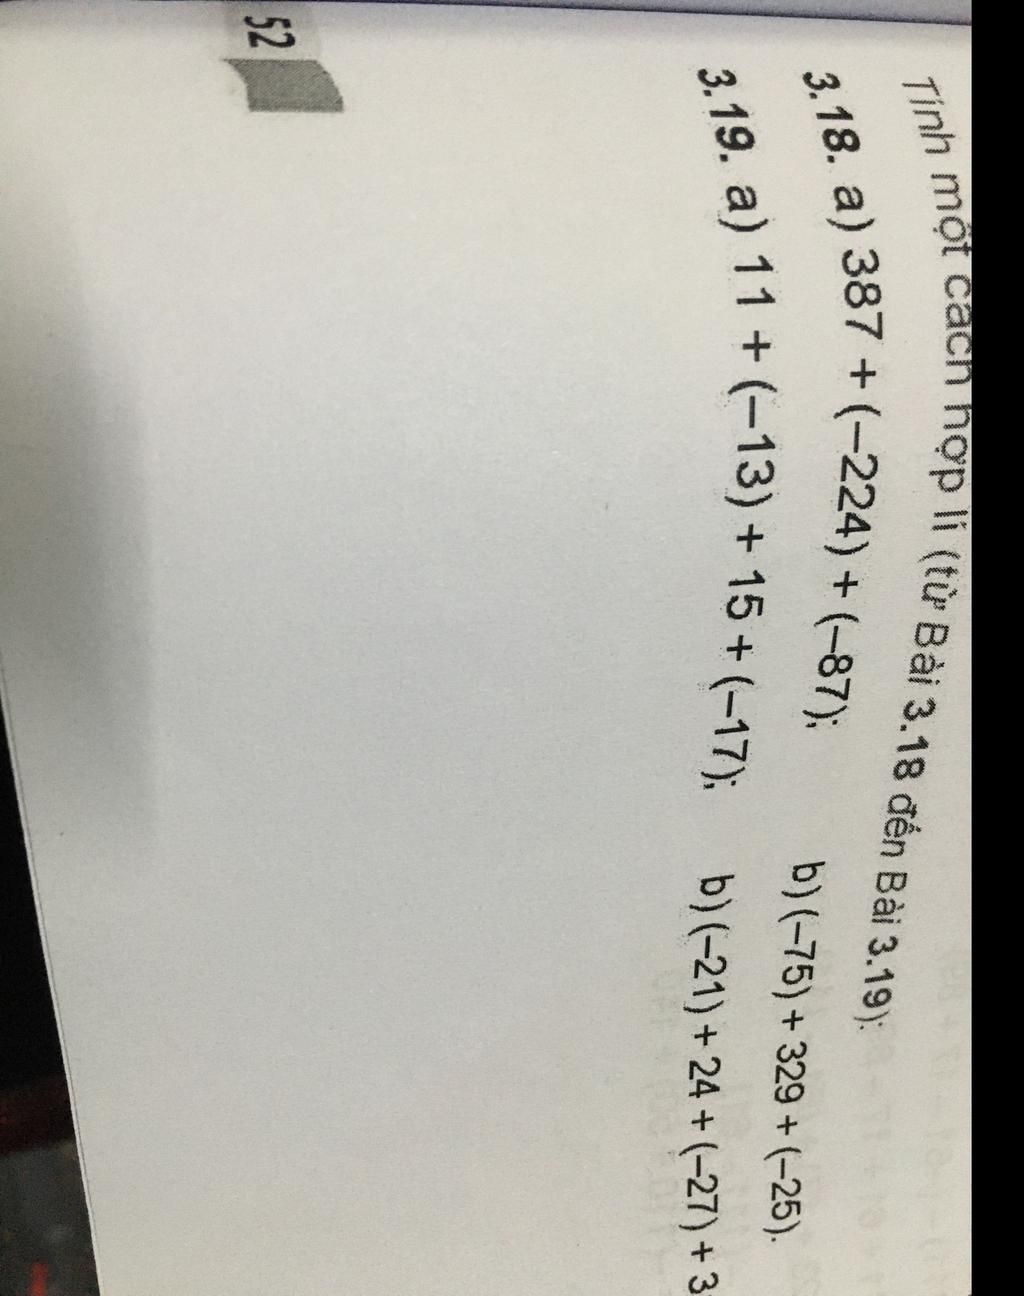 Tính một cách hợp lí (từ Bài 3.18 đến Bài 3.19):
3.18. a) 387 + (–224) + (–87); b) (–75) + 329 + (–25).
3.19. a) 11 + (–13) + 15 + (–17); b) (–21) + 24 + (–27) + 3
52